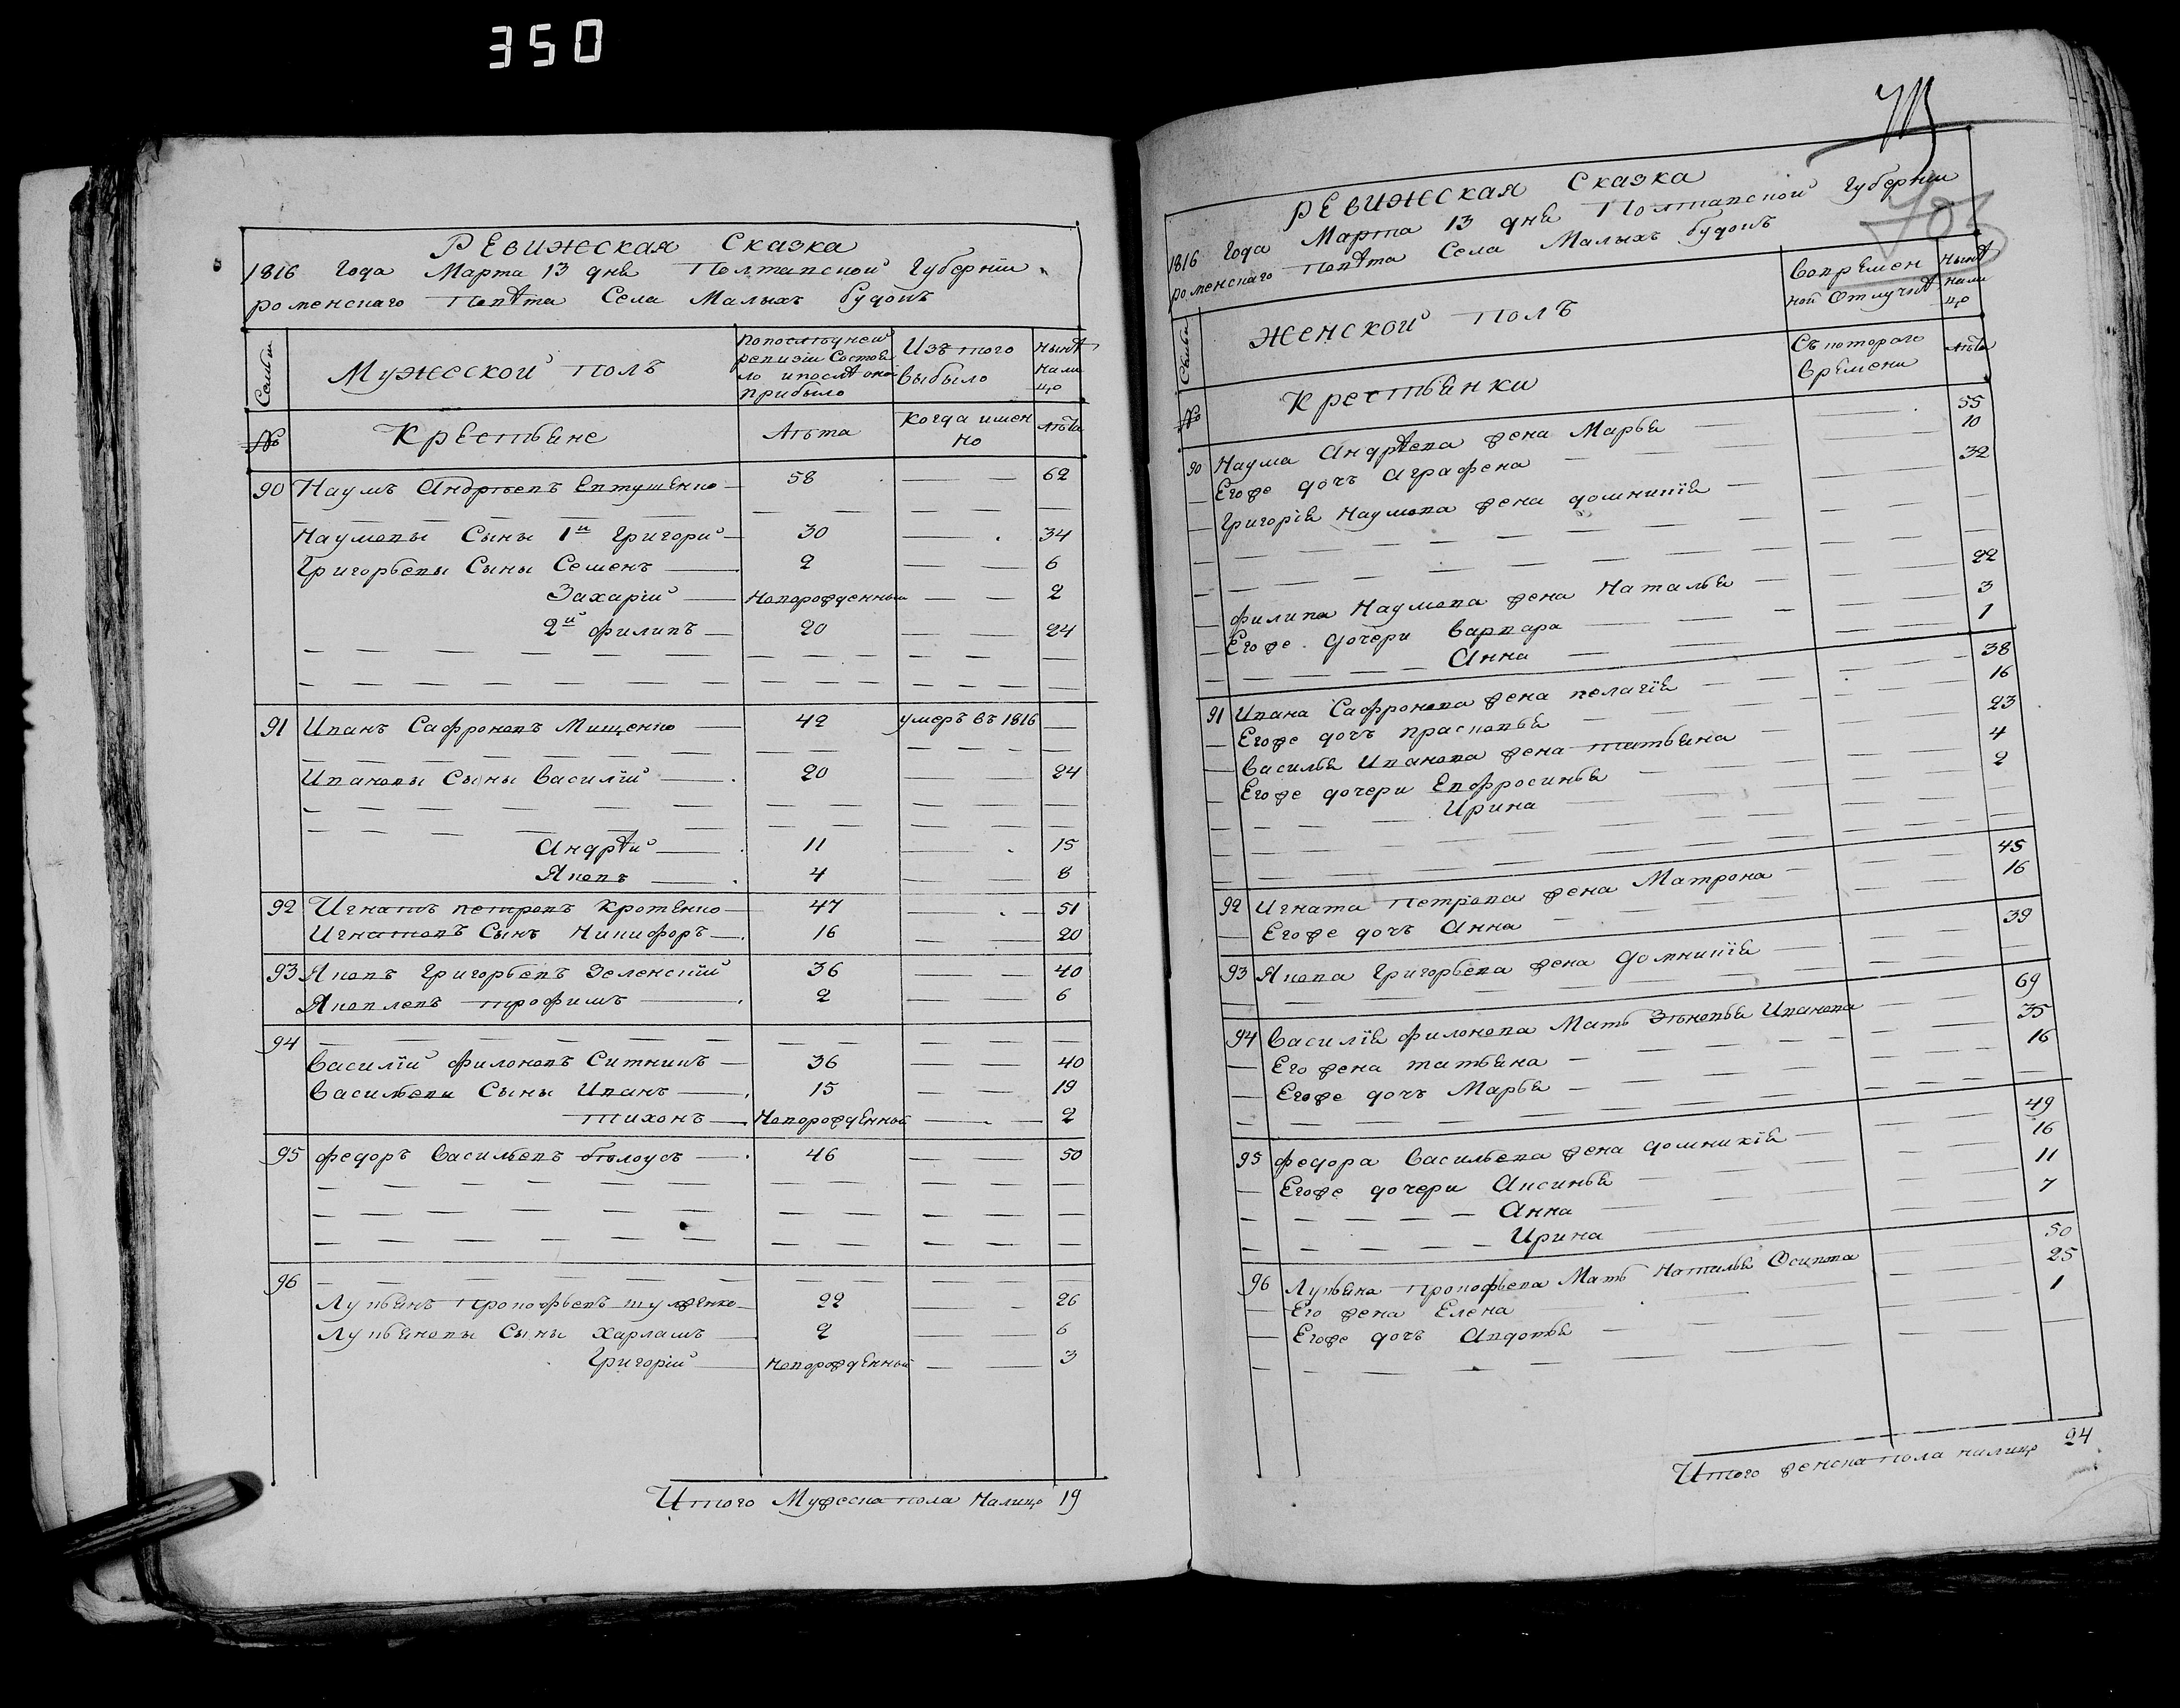 350
Ревижская Сказка
1816 Года Марта 13 дня Полтавской Губерніи
роменскаго Повѣта Села Малыхъ будокъ
Семьи
Мужеской полъ
Попослѣдней ревизіи Состояло ипослѣ оной прибыло
Изъ того выбыло
Нынѣ налицо
№
Крестьяне
Лѣта
Когда именно
Лѣта
90 Наумъ Андрѣевъ Евтушенко — 58 — — 62
Наумовы Сыны 1й Григорій — 30 — 34
Григорьевы Сыны Семенъ — 2 — — 6
Захарій — Новорожденный — — 2
2й филипъ — 20 — — 24
91 Иванъ Сафроновъ Мищенко — 42 умеръ въ 1816 —
Ивановы Сыны Василій — 20 — 24
Андрѣй — 11 — 15
Яковъ — 4 — 8
92 Игнатъ петровъ Кротенко — 47 — 51
Игнатовъ Сынъ Никифоръ — 16 — — 20
93 Яковъ Григорьевъ Зеленскій 36 — — 40
Яковлевъ трофимъ — 2 — 6
94
Василій филоновъ Ситникъ — 36 — — 40
Васильеви Сыны Иванъ — 15 — — 19
тихонъ — Новорожденный — 2
95 федоръ Васильевъ бѣлоусъ — 46 — — 50
96
Лукьянъ Прокофьевъ шулженко — 22 — 26
Лукьяновы Сыны харламъ — 2 — 6
Григорій — новорожденный — — 3
Итого Мужеска пола Налицо 19
703
Ревижская Сказка
1816 Года Марта 13 дня Полтавской Губерніи
роменскаго Повѣта Села Малыхъ будокъ
Семьи
Женской полъ
Вовременной Отлучкѣ
Нынѣ налицо
№
Крестьянки
Съ котораго времени
Лѣта
90 Наума Андрѣева жена Марья — 55
— Егоже дочъ Аграфена — 10
— Григорія Наумова жена домникія — 32
— филипа Наумова жена Наталья — 22
— Егоже дочери Варвара — 3
Анна — 1
91 Ивана Сафронова жена пелагія — 38
— Егоже дочъ прасковья — 16
— Василья Иванова жена татьяна — 23
— Егоже дочери Евфросинья — 4
Ирина — 2
92 Игната Петрова жена Матрона — 45
— Егоже дочъ Анна — 16
93 Якова Григорьева жена Домникія — 39
94 Василія филонова Мать Зѣновья Иванова 69
— Его жена татьяна — 35
— Егоже дочъ Марья — 16
95 федора Васильева жена домникія — 49
— Егоже дочери Аксинья — 16
Анна — 11
Ирина — 7
96 Лукьяна Прокофьева Мать Наталья Осипва 50
— Его жена Елена — 25
— Егоже дочъ Авдотья — 1
Итого женска пола налицо 24